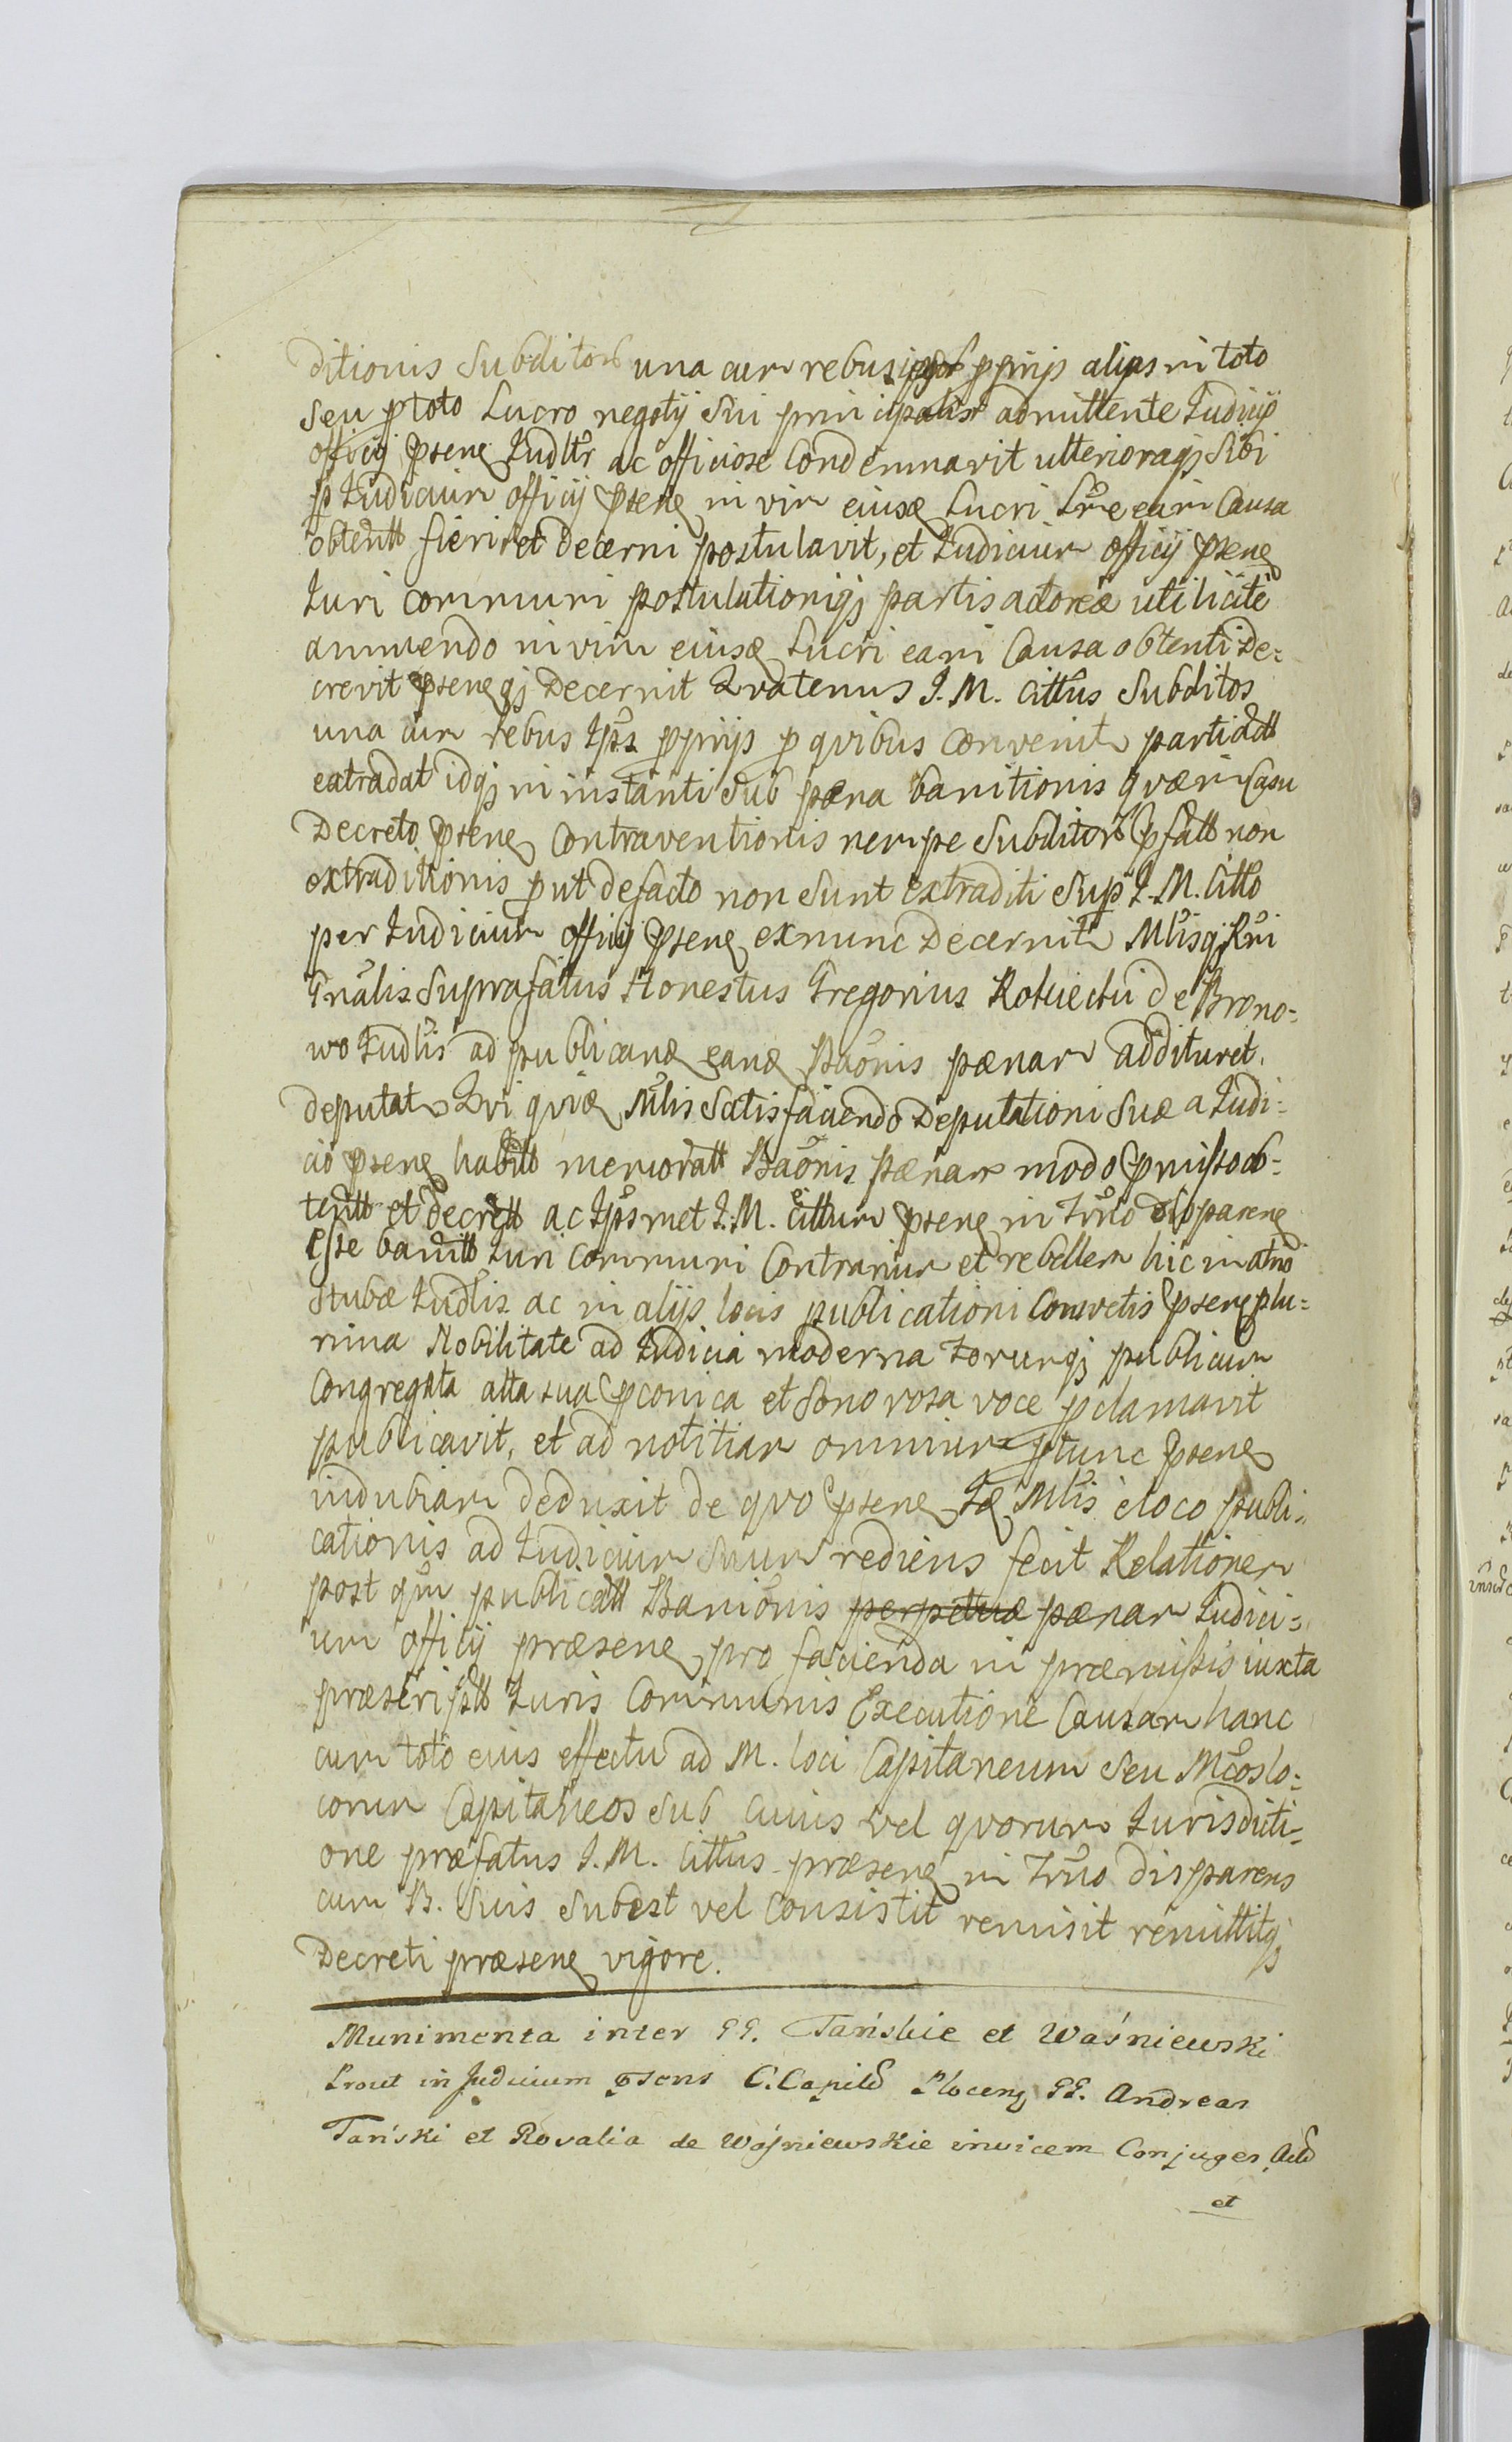 ditionis Subditor una cum rebus ipsor pprijs alias in toto
seu p toto Lucro negotij Sui principalis admittente Iudicio
officij psenq Iudltr ac officiose Condemnavit ulterioraqj Sibi
p Iudicium officij psenq in vim eiusq Lucri Lre eam Causa
obtentt fieri et decerni postulavit, et Iudicium officij psenq
Iuri communi postulationiqj partis actoreæ uti licite
annuendo in vim eiusq Lucri eam Causa obtenti De=
crevit psenqqj Decernit Qvatenus I. M. Cittus Subditos
una cum rebus Ips pprijs p qvibus Convenit parti actt
extradat idqj in instanti sub pæna banitionis qvam Casu
Decreto psenq Contraventionis nempe Subditor pfatt non
extraditionis put de facto non sunt extraditi Sup I. M. Citto
per Iudicium officij psenq ex nunc Decernit Mlisqj Rni
Gnalis Suprafatus Honestus Gregorius de Brono=
wo Iudlis ad publicanq eanq Baonis pænam additur et
deputat Qvi qviq Mlis Satisfaciendo Deputationi Suæ a Iudi=
cio psenq habitt memoratt Baonis pænam modo pmisso ob=
tentt et decrett ac Ipsmet I. M. cittum psenq in Trno disparenq
Esse banitt Iuri Communi Contrarium et rebellem hic in atrio
Stubæ Iudlis ac in alijs locis publicationi Consvetis psenq plu=
rima Nobilitate ad Iudicia moderna Forumqj publicum
Congregata alta sua pconica et Sonorosa voce pclamavit
publicavit, et ad notitiam omnium ptunc psenq
indubiam deduxit de qvo psenq Iq Mlis e loco publi=
cationis ad Iudicium Suum rediens fecit Relationem
post qm publicatt Banionis perpetuæ pænam Iudici=
um officij præsenq pro facienda in præmissis iuxta
præscriptt Iuris Communis Executione Causam hanc
cum toto eius effectu ad M. loci Capitaneum Seu Mcos lo=
corum Capitaneos Sub Cuius vel qvorum Iurisdicti=
one præfatus I. M. Cittus præsenq in Trno disparens
cum B. Suis Subest vel Consistit remisit remittitqj
Decreti præsenq vigore.
Munimenta inter GG. Tańskie et Waśniewski
Prout in Judicium psens C. Capitl Plocenq GG. Andreas
Tański et Rosalia de Waśniewskie invicem Conjuges
et